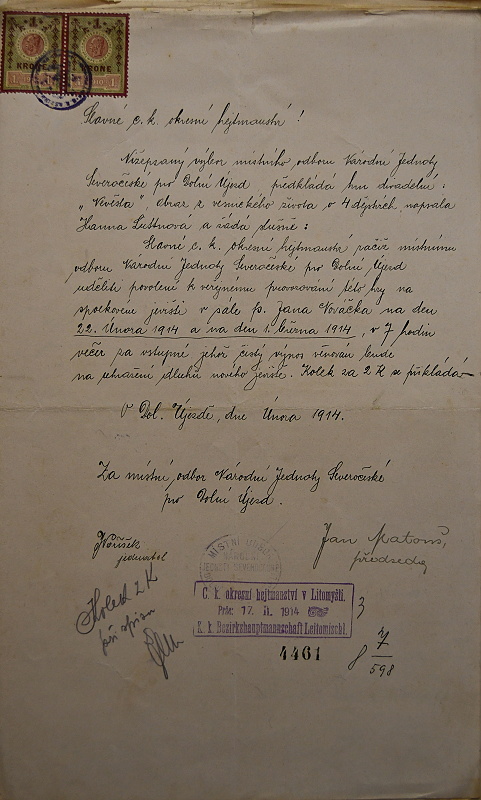 1 1
KRONE KRONE
Slavné c. k. okresní hejtmanství!
Nížepsaný výbor místního odboru Národní Jednoty
Severočeské pro Dolní Újezd předkládá hru divadelní:
„Nevěsta", obraz z vesnického života o 4 dějstvích, napsala
Hanna a žádá slušně:
Slavné c. k. okresní hejtmanství račiž místnímu
odboru Národní Jednoty Severočeské pro Dolní Újezd
uděliti povolení k veřejnému provozování této hry na
spolkovém jevišti v sále p. Jana Nováčka na den
22. Února 1914 a na den 1. března 1914, v 7 hodin
večer za vstupné jehož čistý výnos věnován bude
na uhražení dluhu nového jeviště. Kolek za 2 K se přikládá
V Dol. Újezdě, dne Února 1914.
Za místní odbor Národní Jednoty Severočeské
pro Dolní Újezd.
jednatel
Jan Matouš,
předseda
MÍSTNÍ ODBOR
NÁRODNÍ
JEDNOTY SEVEROČESKÉ
Kolek 2 K
při spisu
C. k. okresní hejtmanství v Litomyšli.
Präs: 17. II. 1914
K. k. Bezirkshauptmannschaft Leitomischl.
4461
3
8 7/598